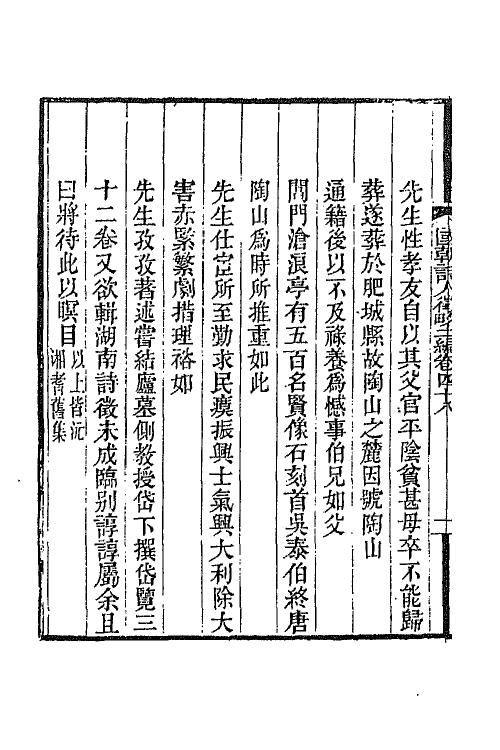 國朝詩人徵略二編卷四十六
先生性孝友自以其父官平陰貧甚母卒不能歸
葬遂葬於肥城縣故陶山之麓因號陶山
通籍後以不及祿養爲憾事伯兄如父
閶門滄浪亭有五百名賢像石刻首吳泰伯終唐
陶山爲時所推重如此
先生仕宦所至勤求民瘼振興士氣興大利除大
害赤緊繁劇措理裕如
先生孜孜著述嘗結廬墓側教授岱下撰岱覽三
十二卷又欲輯湖南詩徵未成臨别諄諄屬余且
曰將待此以瞑目
以上皆沅
湘耆舊集